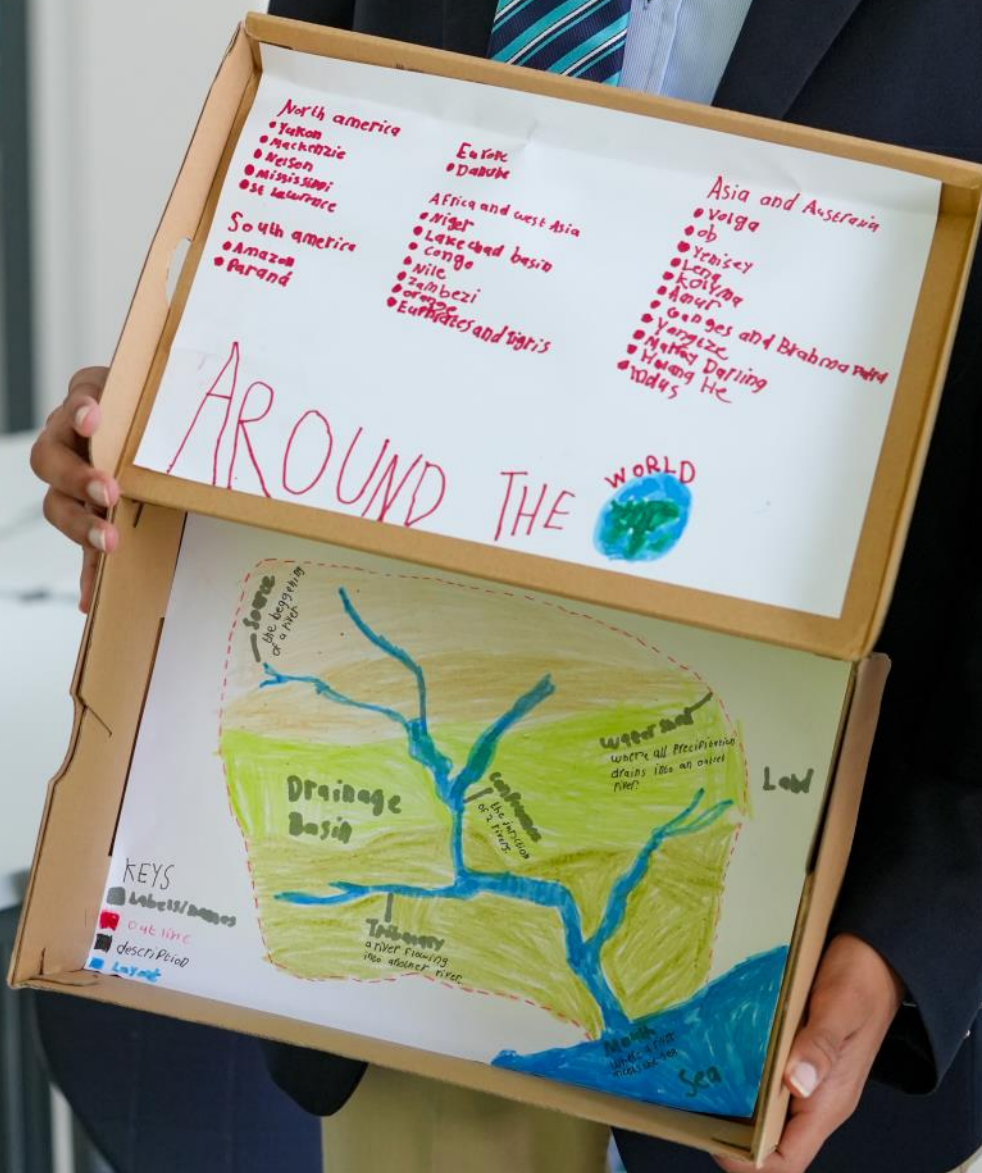 North america
• Yukon
• Mackenzie
• Nelson
• Mississippi
• St Lawrence
South america
• Amazon
• Paraná
Europe
• Danube
Africa and west Asia
• Niger
• Lake chad basin
• Congo
• Nile
• Zambezi
• orange
• Euphrates and Tigris
Asia and Australia
• Volga
• Ob
• Yenisey
• Lena
• Kolyma
• Amur
• Ganges and Brahma Putra
• Yangtze
• Murray Darling
• Hwang He
• Indus
AROUND THE WORLD
Source
the beggening
of a river
Watershed
where all precipitation
drains into an outlet
river.
Land
Drainage
Basin
Confluence
the junction
of 2 rivers.
KEYS
Labels/names
outline
description
Layout
Tributary
a river flowing
into another river.
Mouth
where a river
Sea